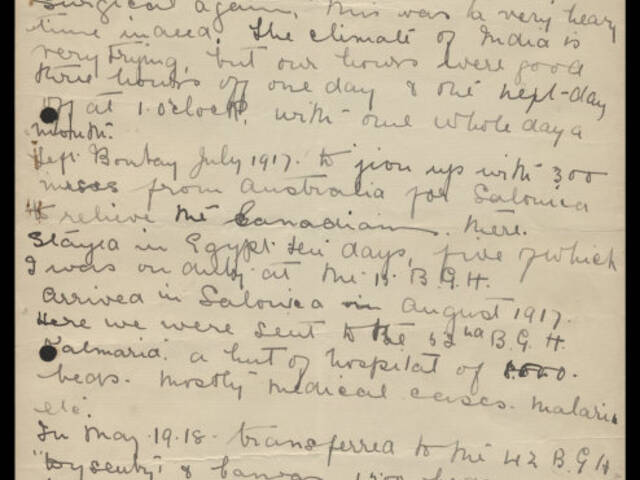 surgical again. This was a very heavy
time indeed. The climate of India is
very trying, but our hours were good
three hours off one day & the next-day
off at 1 o'clock, with one whole day a
month.
Left Bombay July 1917. to jion up with 300
from Australia for Salonica
to relieve the Canadians there.
Stayed in Egypt ten days, five of which
I was on duty at the 15. B.G.H.
Arrived in Salonica in August 1917.
Here we were sent to the 52nd B.G.H.
Kalmaria. a hut hospital of
beds. mostly medical cases. Malaria
etc.
In May 1918 transferred to the 42 B.G.H.
"Dysentry" &